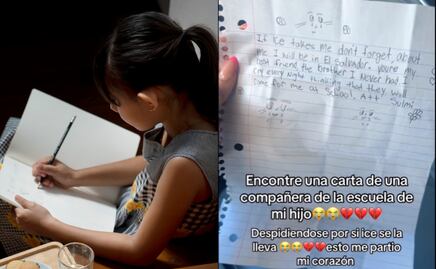 If Ice takes me don't forget, about
me I will be in El Salvador. you're my
best friend the brother I Never had I
cry every Night thinking that they will
come for me at School. Att: Sulmi
Encontre una carta de una
compañera de la escuela de
mi hijo😭😭💔💔💔
Despidiendose por si ice se la
lleva 😭😭💔💔esto me partio
mi corazón